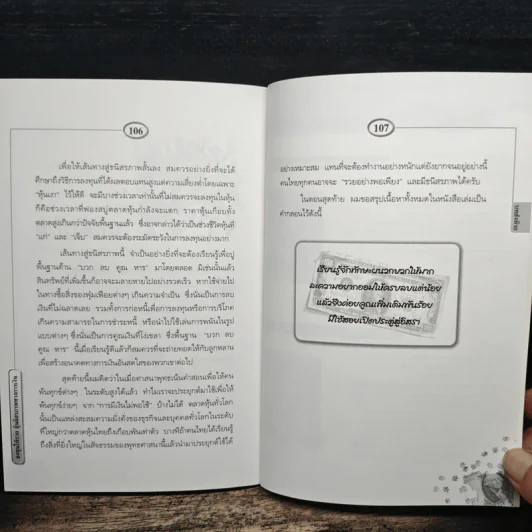 106
เพื่อให้เส้นทางสู่ขนิสรภาพสั้นลง สมควรอย่างยิ่งที่จะได้
ศึกษาถึงวิธีการลงทุนที่ได้ผลตอบแทนสูงแต่ความเสี่ยงต่ำโดยเฉพาะ
"หุ้นเงา" ไว้ให้ดี จะมีบางช่วงเวลาเท่านั้นที่ไม่สมควรจะลงทุนในหุ้น
ก็คือช่วงเวลาที่ฟองสบู่ตลาดหุ้นกำลังจะแตก ราคาหุ้นเกือบทั้ง
ตลาดสูงเกินกว่าปัจจัยพื้นฐานแล้ว ซึ่งอาจกล่าวได้ว่าเป็นช่วงชีวิตหุ้นที่
"แก่" และ "เจ็บ" สมควรจะต้องระมัดระวังในการลงทุนอย่างมาก
เส้นทางสู่ขนิสรภาพนี้ จำเป็นอย่างยิ่งที่จะต้องเรียนรู้เพื่อปู
พื้นฐานด้าน "บวก ลบ คูณ หาร" มาโดยตลอด มิเช่นนั้นแล้ว
สินทรัพย์ที่เพิ่มขึ้นก็อาจจะมลายหายไปอย่างรวดเร็ว หากใช้จ่ายไป
ในทางซื้อสิ่งของฟุ่มเฟือยต่างๆ เกินความจำเป็น ซึ่งนับเป็นการลบ
เงินที่ไม่ฉลาดเลย รวมทั้งการก่อหนี้เพื่อการลงทุนหรือการบริโภค
เกินความสามารถในการชำระหนี้ หรือนำไปใช้เล่นการพนันในรูป
แบบต่างๆ ซึ่งนับเป็นการคูณเงินที่ไร้เขลา ซึ่งพื้นฐาน "บวก ลบ
คูณ หาร" นี้เมื่อเรียนรู้ดีแล้วก็สมควรที่จะถ่ายทอดให้กับลูกหลาน
เพื่อสร้างอนาคตทางการเงินอันสดใสของพวกเขาต่อไป
สุดท้ายนี้ผมคิดว่าในเมื่อศาสนาพุทธเน้นคำสอนเพื่อให้คน
พ้นทุกข์ต่างๆ ในระดับสูงได้แล้ว ทำไมเราจะประยุกต์มาใช้เพื่อให้
พ้นทุกข์ง่ายๆ จาก "การมีเงินไม่พอใช้" บ้างไม่ได้ ตลาดหุ้นทั่วโลก
นั้นเป็นแหล่งสะสมความมั่งคั่งของธุรกิจและบุคคลทั่วโลกในระดับ
ที่ใหญ่กว่าตลาดหุ้นไทยถึงเกือบพันเท่าตัว บางทีถ้าคนไทยได้เรียนรู้
ถึงสิ่งที่ยิ่งใหญ่ในสัจธรรมของพุทธศาสนานี้แล้วนำมาประยุกต์ใช้ได้
107
อย่างเหมาะสม แทนที่จะต้องทำงานอย่างหนักแต่ยังยากจนอยู่อย่างนี้
คนไทยทุกคนอาจจะ "รวยอย่างพอเพียง" และมีขนิสรภาพได้ครับ
ในตอนสุดท้าย ผมขอสรุปเนื้อหาทั้งหมดในหนังสือเล่มเป็น
คำกลอนไว้ดังนี้
เรียนรู้จักทักษะผนวกบวกให้มาก
ละความอยากออมให้ครบลบแต่น้อย
แล้วจึงค่อยคูณเพิ่มเติมทีเรือย
มีใช้สอยเปิดประตูสู่อิสรา
บทส่งท้าย